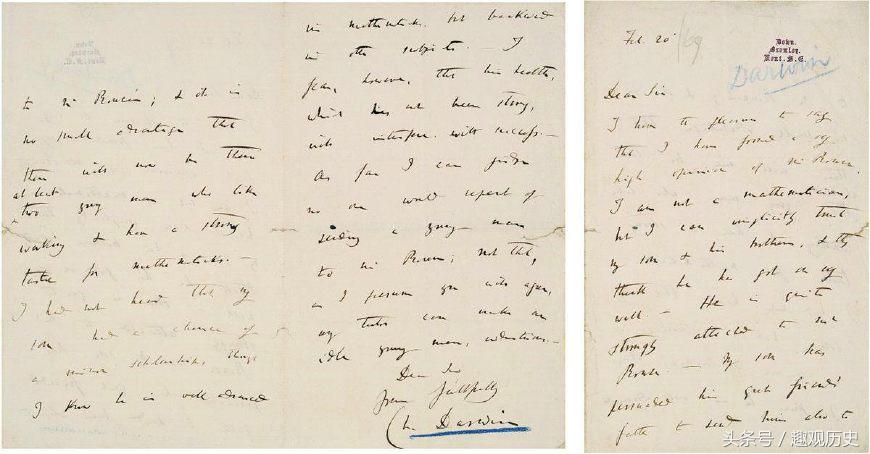 Feb. 20 /69
Down.
Bromley.
Kent. S.E.
Darwin
Dear Sir
I have the pleasure to say
that I have formed a very
high opinion of Mr
I am not a mathematician,
but I can implicitly trust
my son & his brothers, & they
think he has got on very
well — He is quite
strongly attached to Mr
— My son has
persuaded his great friend's
father to send him also to
to Mr ; & it is
no small advantage that
there will now be there
at least
two young men who like
working & have a strong
taste for mathematics. —
I had not heard that my
son had a chance of
a minor scholarship, though
I know he is well advanced
in mathematics, but backward
in other subjects. — I
fear, however, that his health,
which has not been strong,
will interfere with success. —
As far as I can judge
no one would repent of
sending a young man
to Mr ; not that,
as I presume you will agree,
any tutor can make an
idle young man, industrious. —
Dear Sir
Yours faithfully
Ch. Darwin
头条号 / 趣观历史